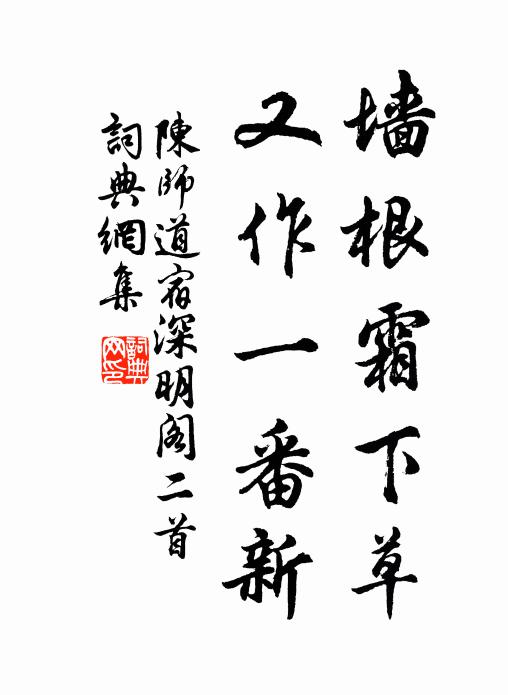 墙根霜下草
又作一番新
陳師道宿深明阁二首
詞典網集
詞典网印